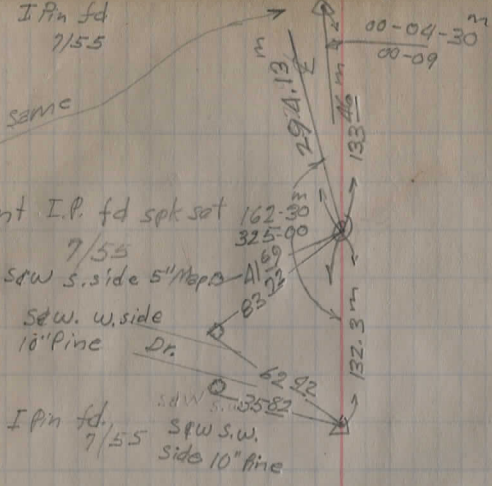 I Pin fd
7/55
00-04-30 m
00-09
294.13 m
133.46 m
same
nt I.P. fd spk set
7/55
162-30 m
325-00
s&w s. side 5" Maple
41 69
83 22
s&w. w. side
10" Pine
Dr.
132.3 m
62 22
35 82
I Pin fd.
7/55
s&w s.w.
side 10" Pine